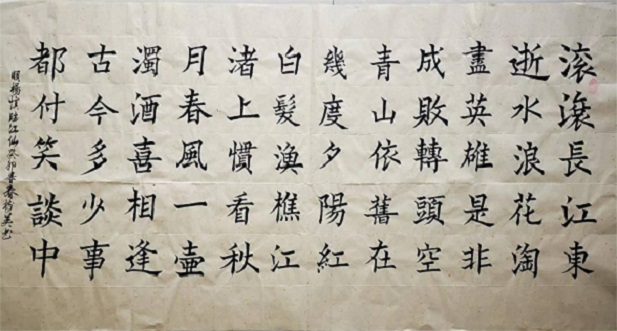 滚滾長江東
逝水浪花淘
盡英雄是非
成敗轉頭空
青山依舊在
幾度夕陽紅
白髮漁樵江
渚上慣看秋
月春風一壷
濁酒喜相逢
古今多少事
都付笑談中
明楊慎臨江仙